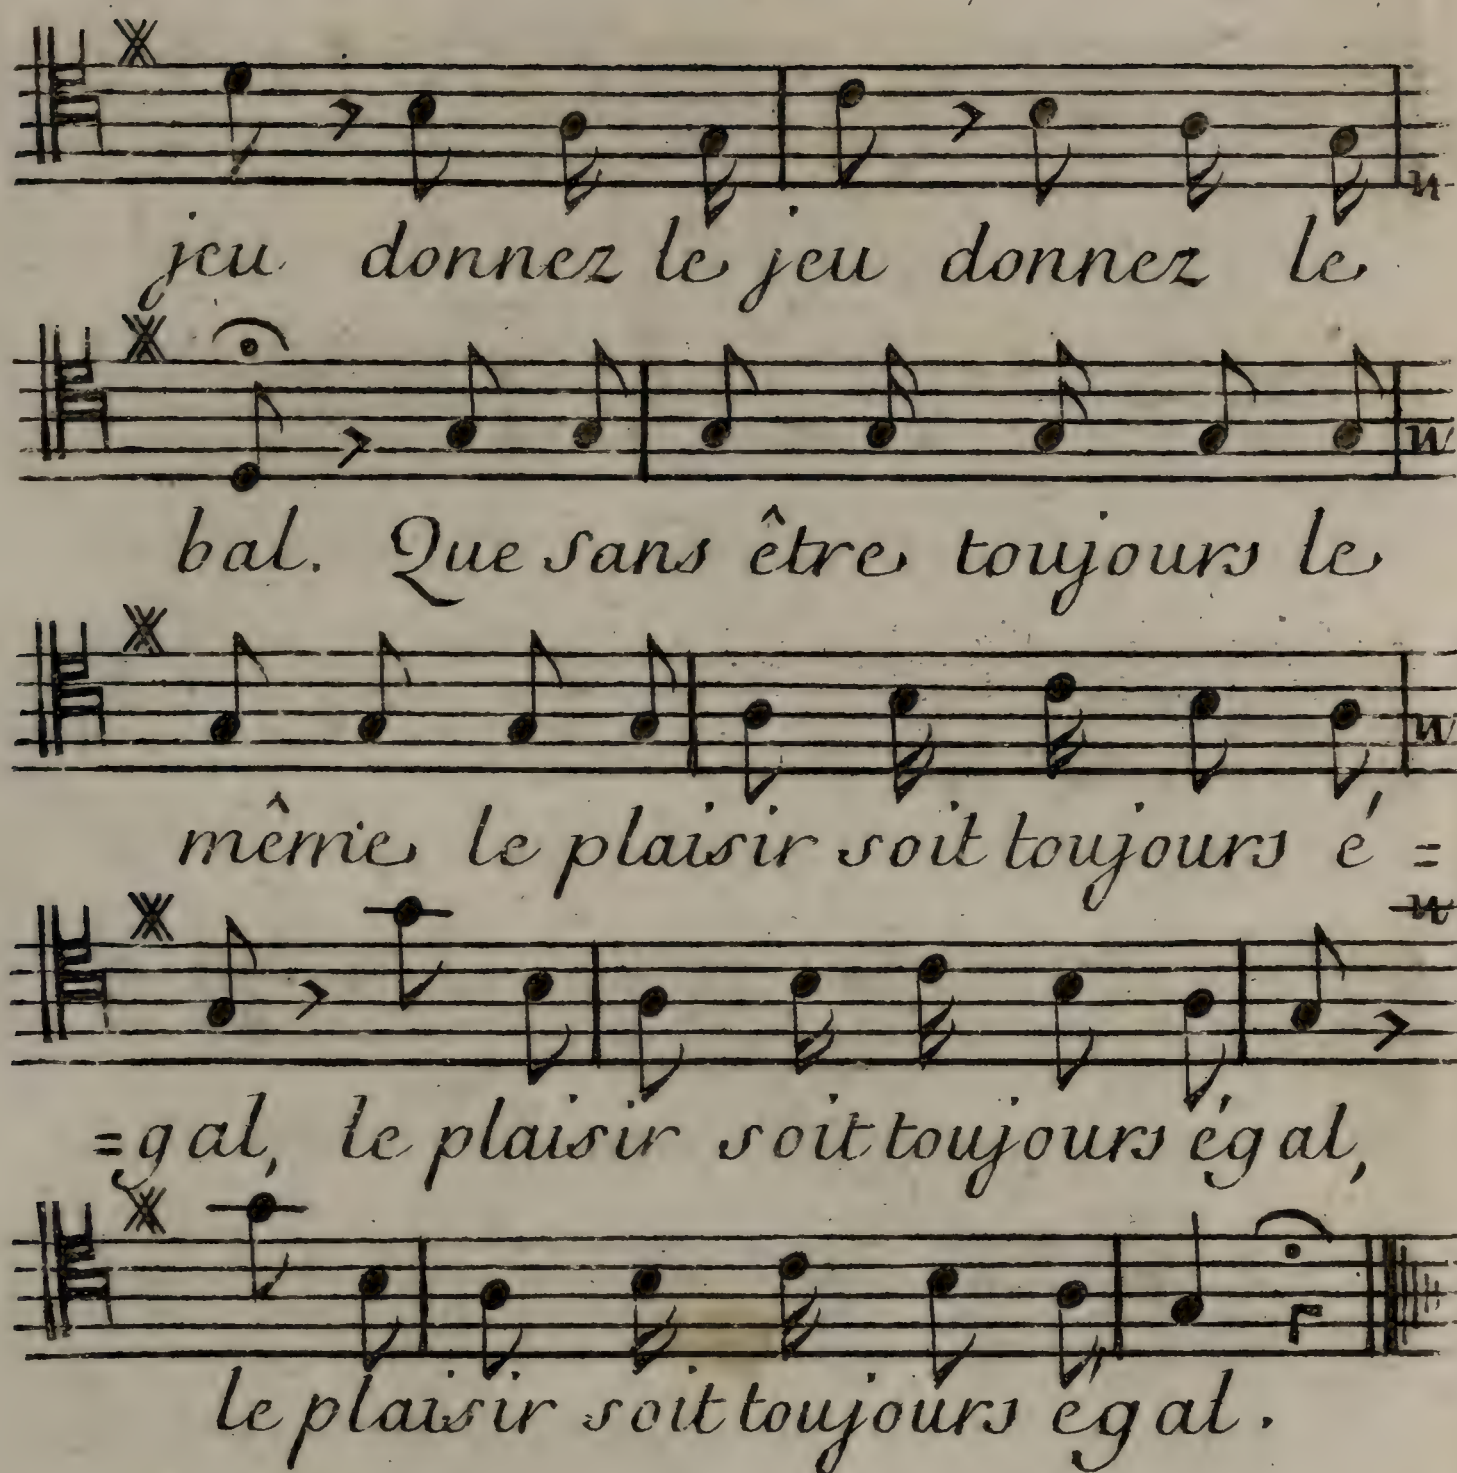 jeu donnez le jeu donnez le
bal. Que sans être toujours le
même le plaisir soit toujours é=
=gal, le plaisir soit toujours égal,
le plaisir soit toujours égal.